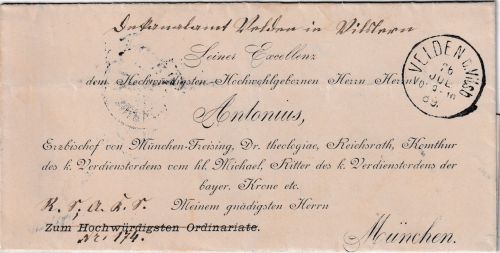 Dekanalamt Velden in Vilslern
Seiner Excellenz
dem Hochwürdigsten-Hochwohlgebornen Herrn Herrn
VELDEN a. VILS
26
JUL
89.
Antonius,
Erzbischof von München-Freising, Dr. theologiae, Reichsrath, Komthur
des k. Verdienstordens vom hl. Michael, Ritter des k. Verdienstordens der
bayer. Krone etc.
Meinem gnädigsten Herrn
Zum Hochwürdigsten Ordinariate.
Nr. 174.
München.